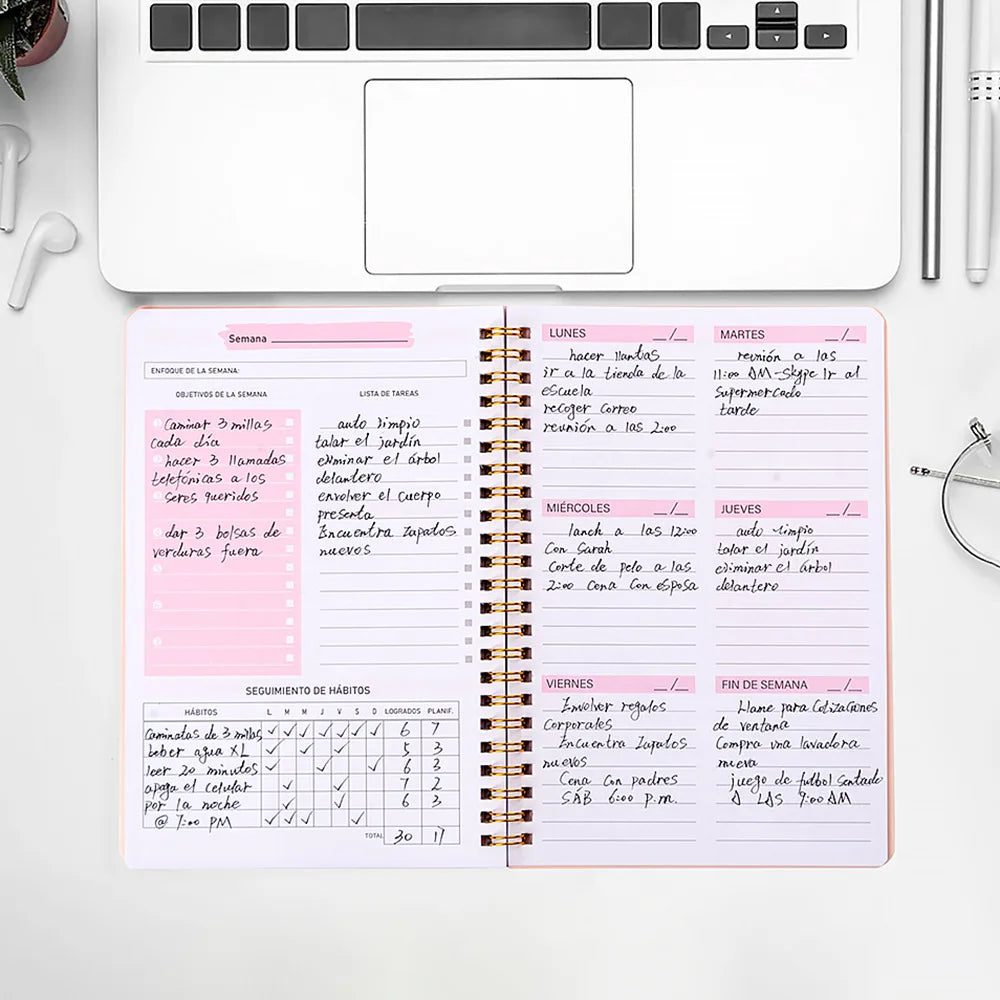 Semana
ENFOQUE DE LA SEMANA:
OBJETIVOS DE LA SEMANA
Caminar 3 millas
cada día
hacer 3 llamadas
telefónicas a los
seres queridos
dar 3 bolsas de
verduras fuera
LISTA DE TAREAS
auto limpio
talar el jardín
eliminar el árbol
delantero
envolver el cuerpo
presenta
Encuentra Zapatos
nuevos
SEGUIMIENTO DE HÁBITOS
HÁBITOS L M M J V S D LOGRADOS PLANIF.
Caminatas de 3 millas ✓ ✓ ✓ ✓ ✓ ✓ ✓ 6 7
beber agua XL ✓ ✓ ✓ 5 3
leer 20 minutos ✓ ✓ ✓ 6 3
apaga el celular ✓ ✓ 7 2
por la noche ✓ ✓ 6 3
@ 7:00 PM ✓ ✓ ✓ ✓
TOTAL 30 17
LUNES __/__
hacer llantas
ir a la tienda de la
escuela
recoger correo
reunión a las 2:00
MARTES __/__
reunión a las
11:00 AM-Skype Ir al
Supermercado
tarde
MIÉRCOLES __/__
lanch a las 12:00
Con Sarah
Corte de pelo a las
2:00 Cena Con esposa
JUEVES __/__
auto limpio
talar el jardín
eliminar el árbol
delantero
VIERNES __/__
Envolver regalos
Corporales
Encuentra Zapatos
nuevos
Cena Con padres
SÁB 6:00 p.m.
FIN DE SEMANA __/__
Llame para Cotizaciones
de ventana
Compra una lavadora
nueva
juego de futbol Sentado
A LAS 9:00 AM